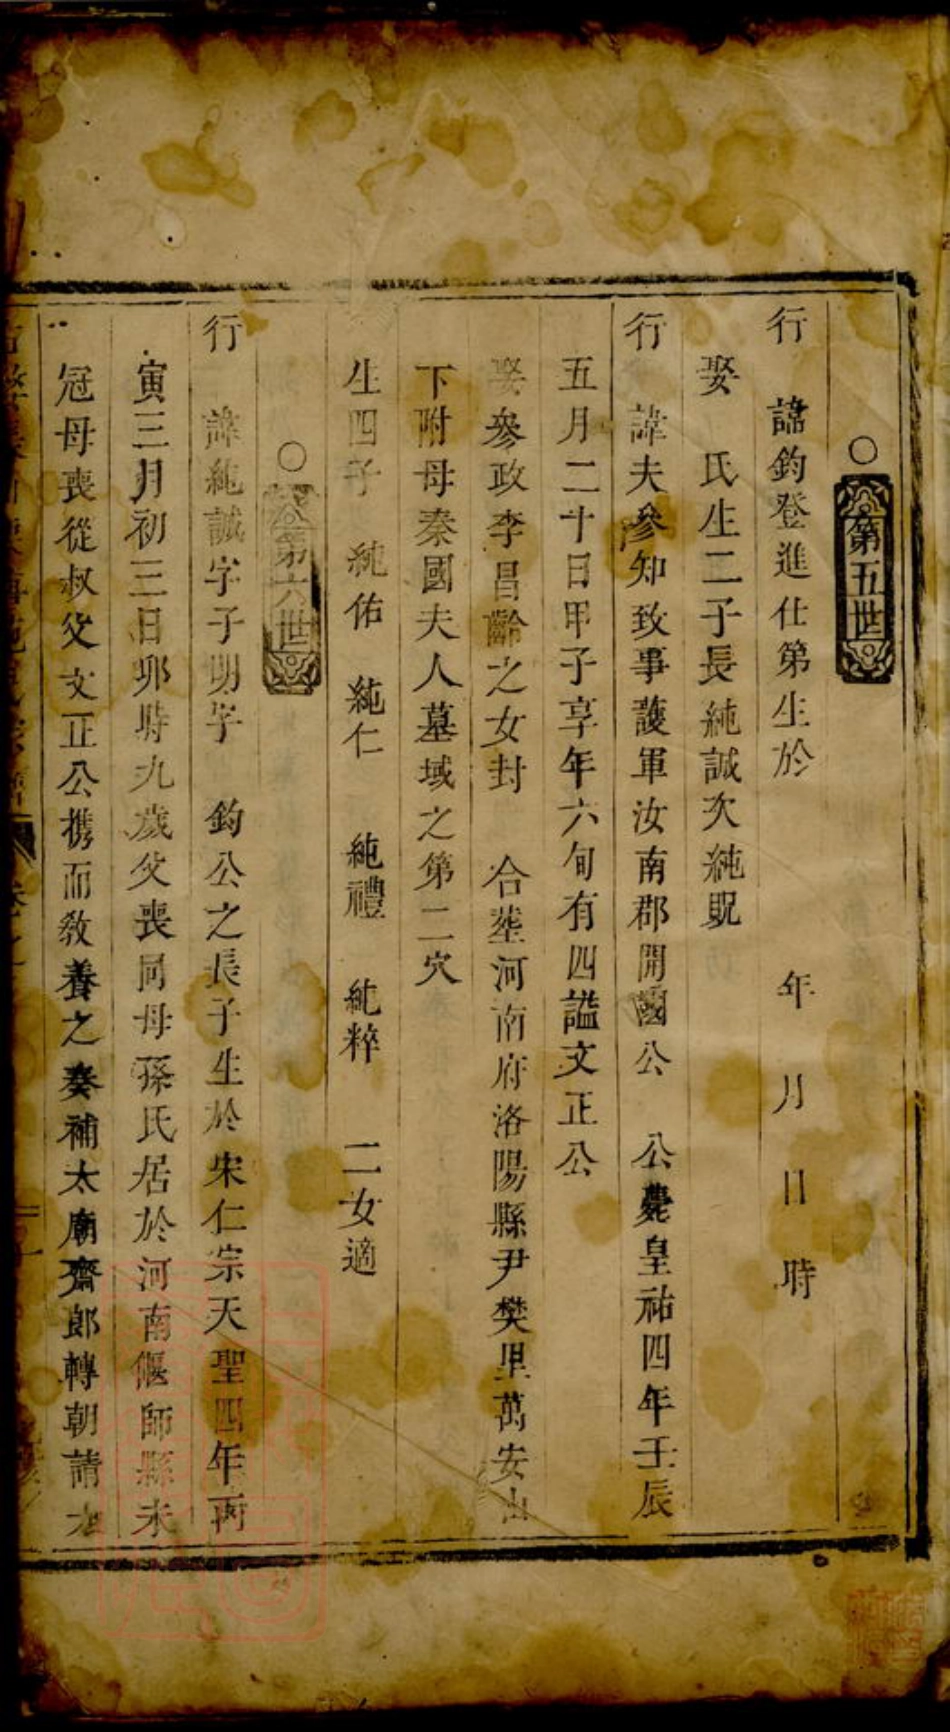 ○第五世
行 諱鈞登進仕第生於 年 月 日 時
娶 氏生二子長純誠次純貺
行 諱夫參知致事護軍汝南郡開國公 公薨皇祐四年壬辰
五月二十日甲子享年六旬有四謚文正公
娶參政李昌齡之女封 合塟河南府洛陽縣尹樊里萬安山
下附母秦國夫人墓域之第二穴
生四子 純佑 純仁 純禮 純粹 二女適
○第六世
行 諱純誠字子明字 鈞公之長子生於宋仁宗天聖四年丙
寅三月初三日卯時九歲父喪同母孫氏居於河南偃師縣未
冠母喪從叔父文正公携而敎養之奏補太廟齋郎轉朝請大